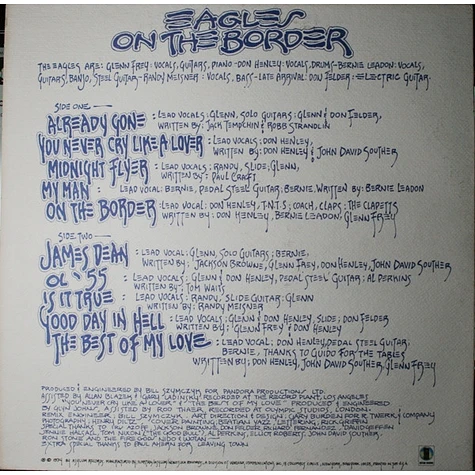 EAGLES
ON THE BORDER
THE EAGLES ARE: GLENN FREY: VOCALS, GUITARS, PIANO - DON HENLEY: VOCALS, DRUMS - BERNIE LEADON: VOCALS,
GUITARS, BANJO, STEEL GUITAR - RANDY MEISNER: VOCALS, BASS - LATE ARRIVAL: DON FELDER: ELECTRIC GUITAR.
SIDE ONE
ALREADY GONE: LEAD VOCALS: GLENN, SOLO GUITARS: GLENN & DON FELDER,
WRITTEN BY: JACK TEMPCHIN & ROBB STRANDLIN
YOU NEVER CRY LIKE A LOVER: LEAD VOCALS: DON HENLEY,
WRITTEN BY: DON HENLEY & JOHN DAVID SOUTHER
MIDNIGHT FLYER: LEAD VOCALS: RANDY, SLIDE; GLENN,
WRITTEN BY: PAUL CRAFT
MY MAN: LEAD VOCAL: BERNIE, PEDAL STEEL GUITAR: BERNIE, WRITTEN BY: BERNIE LEADON
ON THE BORDER: LEAD VOCAL: DON HENLEY, T.N.T.S; COACH, CLAPS: THE CLAPETTS
WRITTEN BY: DON HENLEY, BERNIE LEADON, GLENN FREY
SIDE TWO
JAMES DEAN: LEAD VOCAL: GLENN, SOLO GUITARS: BERNIE,
WRITTEN BY: JACKSON BROWNE, GLENN FREY, DON HENLEY, JOHN DAVID SOUTHER
OL' '55: LEAD VOCALS: GLENN & DON HENLEY, PEDAL STEEL GUITAR: AL PERKINS
WRITTEN BY: TOM WAITS
IS IT TRUE: LEAD VOCALS: RANDY, SLIDE GUITAR: GLENN
WRITTEN BY: RANDY MEISNER
GOOD DAY IN HELL: LEAD VOCALS: GLENN & DON HENLEY, SLIDE; DON FELDER
WRITTEN BY: GLENN FREY & DON HENLEY
THE BEST OF MY LOVE: LEAD VOCAL: DON HENLEY, PEDAL STEEL GUITAR:
BERNIE, THANKS TO GUIDO FOR THE TABLES
WRITTEN BY: DON HENLEY, JOHN DAVID SOUTHER, GLENN FREY
PRODUCED & ENGINEERED BY BILL SZYMCZYK FOR PANDORA PRODUCTIONS LTD.
ASSISTED BY ALLAN BLAZEK & GARY LADINSKY / RECORDED AT THE RECORD PLANT, LOS ANGELES
"YOU NEVER CRY LIKE A LOVER" & "THE BEST OF MY LOVE" PRODUCED & ENGINEERED
BY GLYN JOHNS, ASSISTED BY ROD THAER, RECORDED AT OLYMPIC STUDIOS, LONDON
REMIX ENGINEER: BILL SZYMCZYK ART DIRECTION & DESIGN: GARY BURDEN FOR R. TWERK & COMPANY
PHOTOGRAPHY: HENRY DILTZ COVER PAINTING: BEATIEN YAZZ LETTERING: RICK GRIFFIN
SPECIAL THANKS TO
JACKSON BROWNE, DON FELDER, DAVID GEFFEN,
ELLIOT ROBERTS, JOHN DAVID SOUTHER,
RON STONE AND THE FIRE GODS NIDO & UXTAN
EXTRA SPECIAL THANKS TO PAUL AHERN FOR LEAVING TOWN